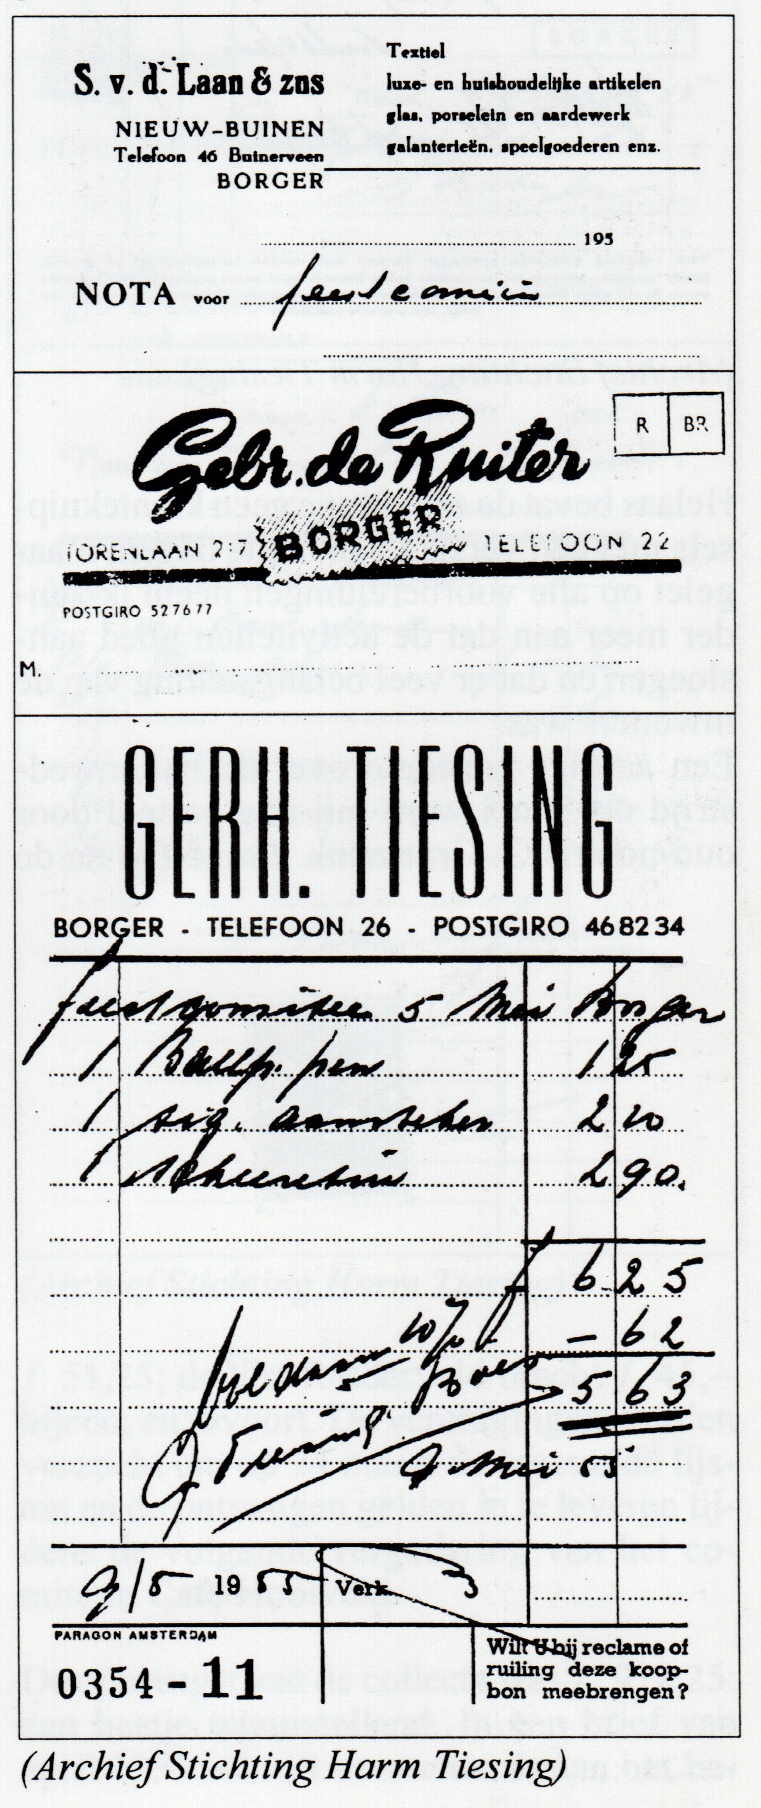 S. v. d. Laan & zns
NIEUW-BUINEN
Telefoon 46 Buinerveen
BORGER
Textiel
luxe- en huishoudelijke artikelen
glas, porselein en aardewerk
galanterieën, speelgoederen enz.
195
NOTA voor feestcomité
R BR
Gebr. de Ruiter
BORGER
TORENLAAN 2-7 TELEFOON 22
POSTGIRO 527677
M.
GERH. TIESING
BORGER - TELEFOON 26 - POSTGIRO 468234
feestcomitee 5 Mei Borger
1 Ballp. pen 1 25
1 sig. aansteker 2 10
1 scheeretui 2 90.
f 6 25
10% - 62
Voldaan 5 63
G Tiesing
9 Mei 55
9/5 1955 Verk. 3
PARAGON AMSTERDAM
0354-11
Wilt U bij reclame of
ruiling deze koop-
bon meebrengen?
(Archief Stichting Harm Tiesing)